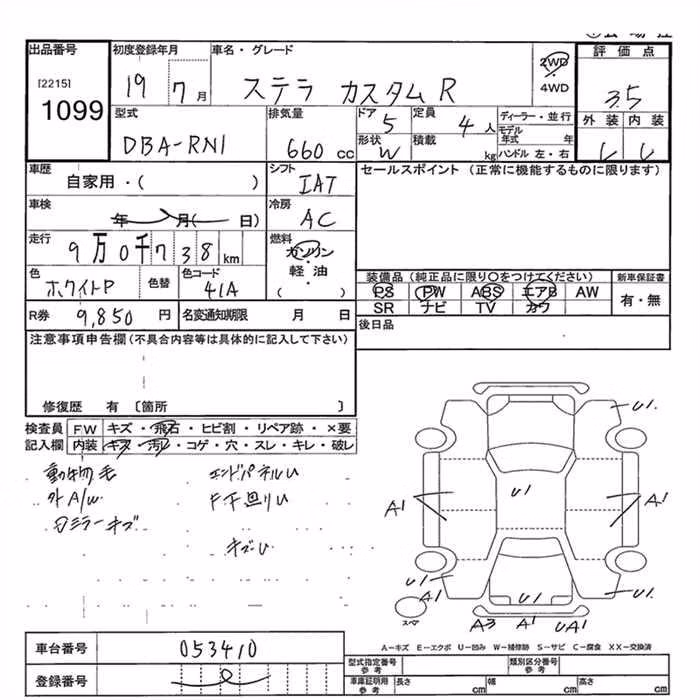 出品番号 初度登録年月 車名・グレード 評価点
[2215] 1099
19 7月 ステラ カスタムR 2WD 4WD 3.5
型式 排気量 ドア 定員 ディーラー・並行 外装 内装
DBA-RN1 660cc 5 4人 モデル年式 年
形状 W 積載 kg ハンドル 左・右
車歴 シフト セールスポイント(正常に機能するものに限ります)
自家用・( ) IAT
車検 冷房
年 月( 日) AC
走行 燃料
9万0千738km ガソリン
軽油
( )
色 色替 色コード 装備品(純正品に限り○をつけてください) 新車保証書
ホワイトP 41A PS PW ABS エアB AW 有・無
SR ナビ TV カワ
R券 9,850円 名変通知期限 月 日 後日品
注意事項申告欄(不具合内容等は具体的に記入して下さい)
修復歴 有 〔箇所 〕
検査員 FW キズ・飛石・ヒビ割・リペア跡・×要
記入欄 内装 キズ・汚レ・コゲ・穴・スレ・キレ・破レ
動物毛 エンドパネルU
外A/W F下廻りU
キズU
U1
A1 U1 A1
U1 A1 U1 U1
スペア A3 A1 UA1
A-キズ E-エクボ U-凹み W-補修跡 S-サビ C-腐食 XX-交換済
車台番号 053410
登録番号
型式指定番号 参考 類別区分番号 参考
車庫証明用 参考 長さ cm 幅 cm 高さ cm